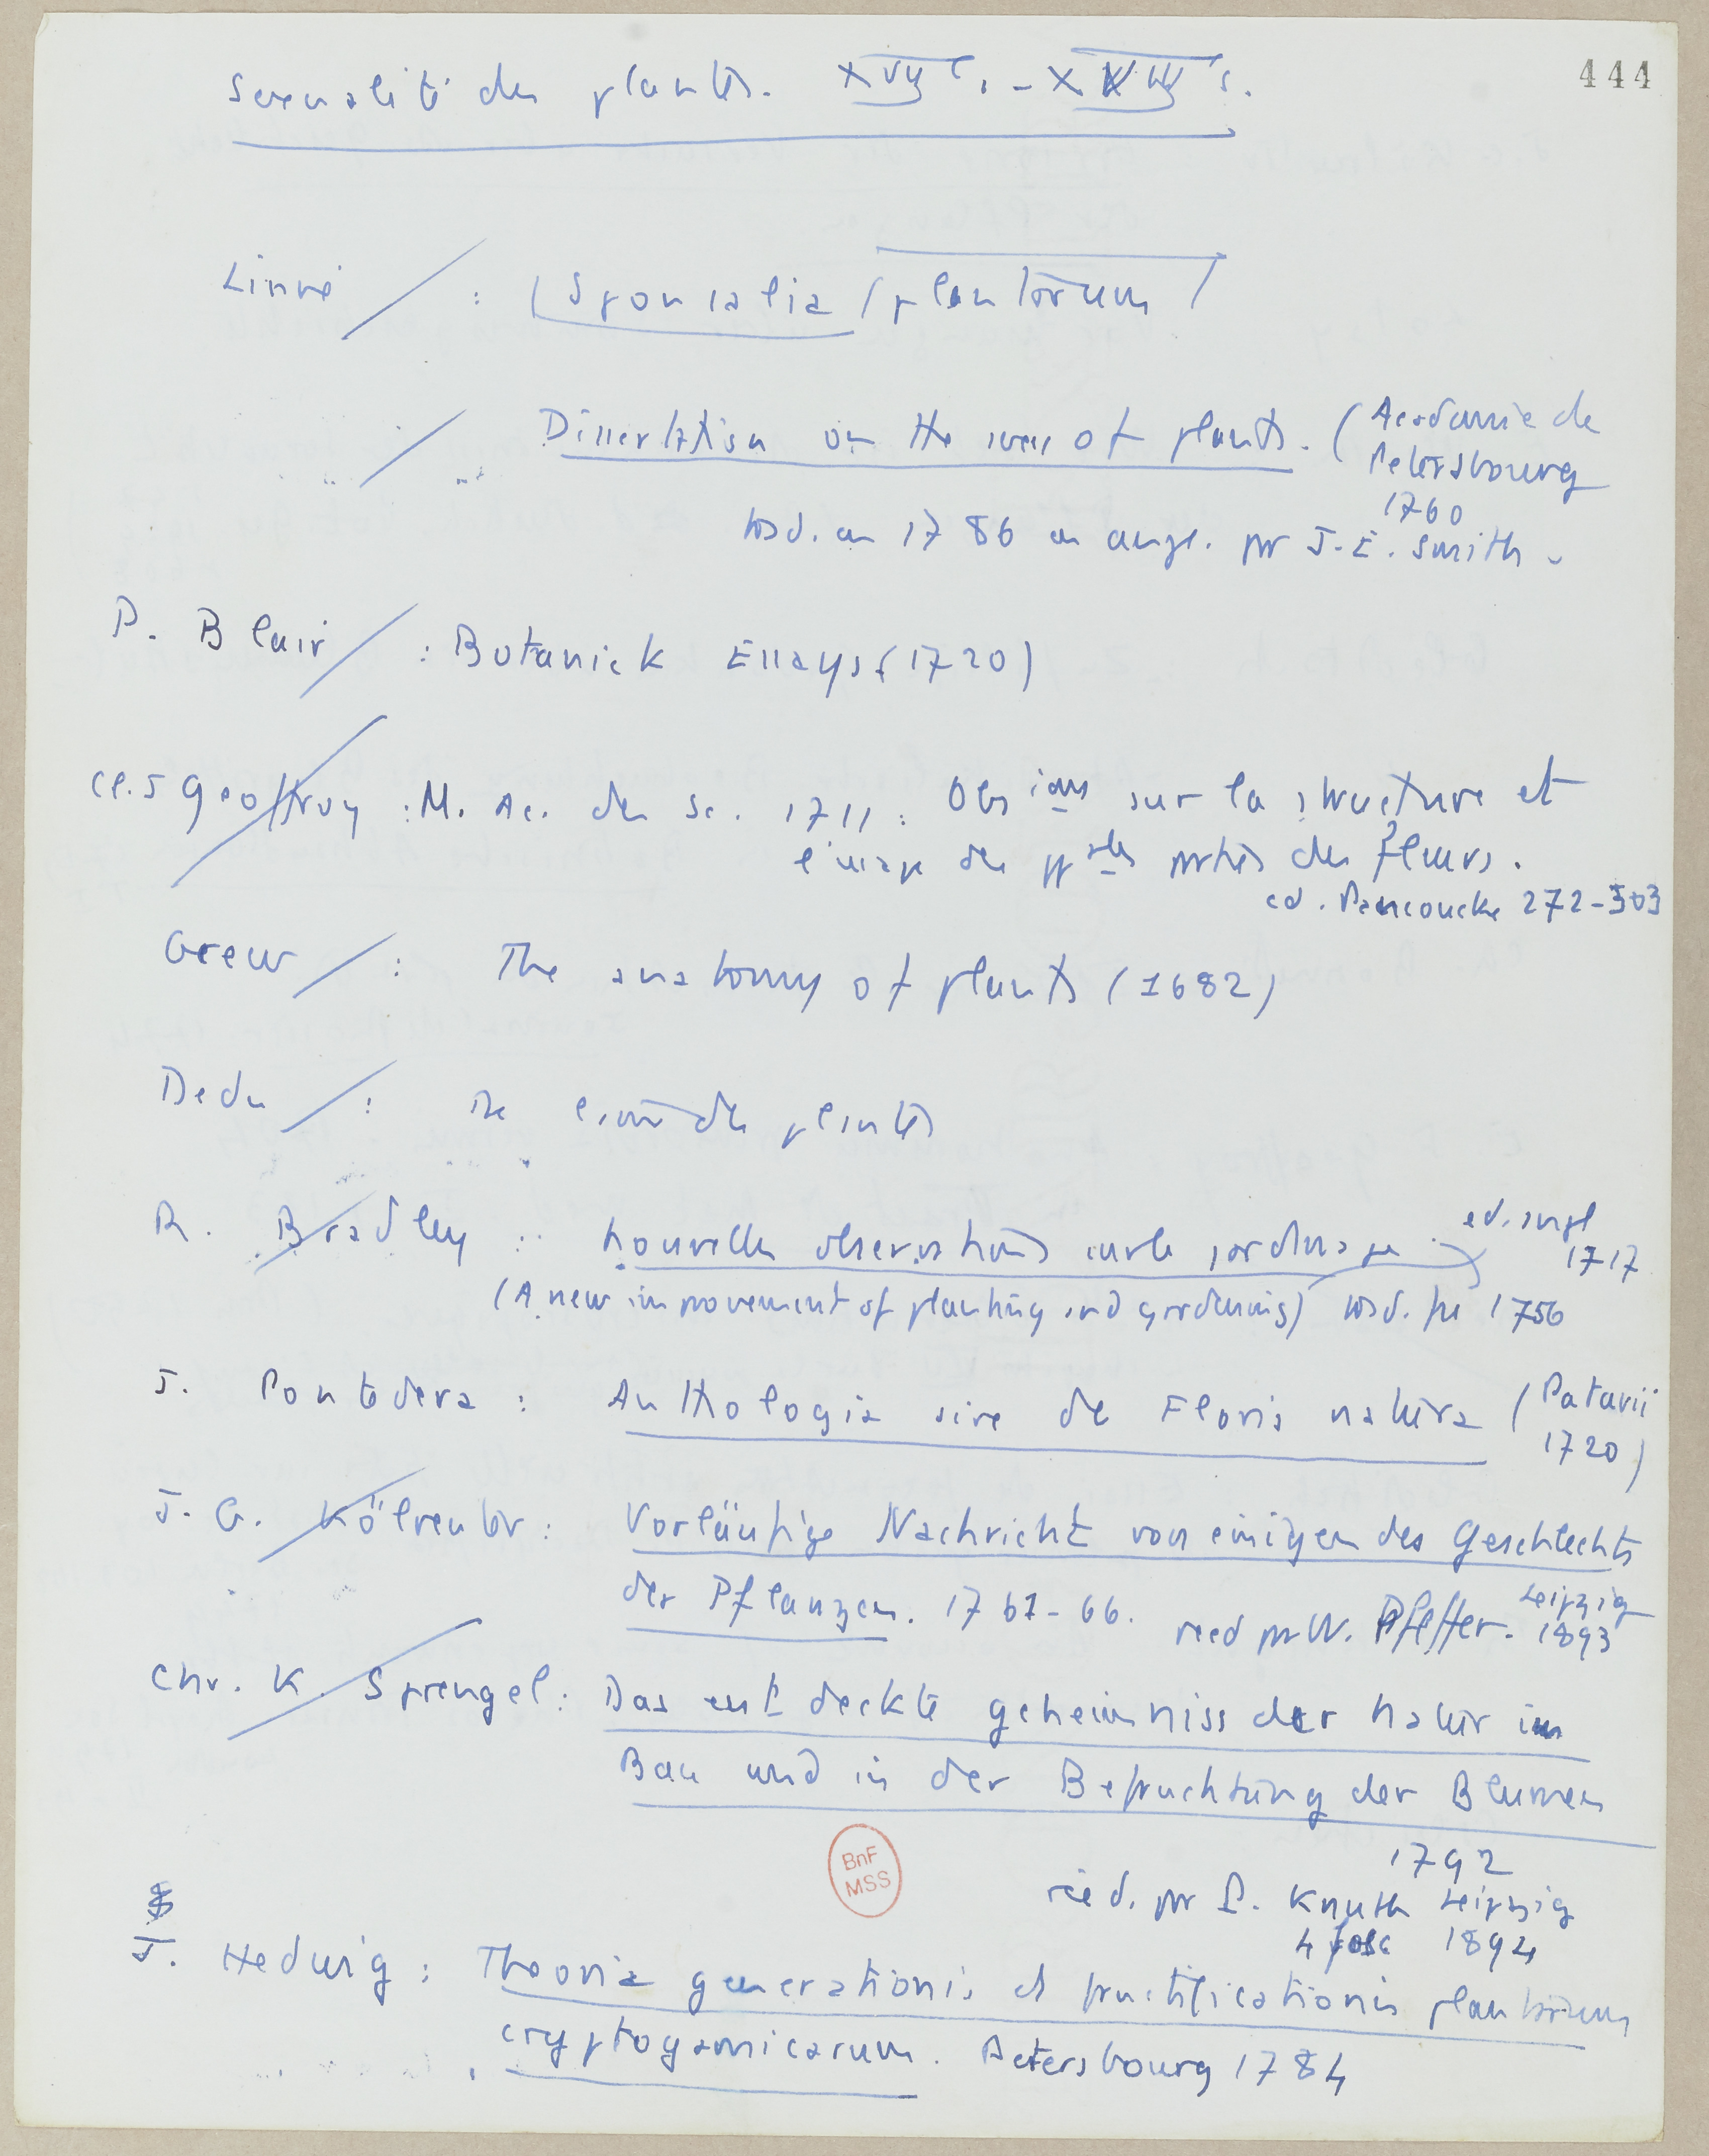 444
Sexualité des plantes. XVIIe s. - XVIIIe s.
Linné : Sponsalia plantarum
Dissertation on the sexes of plants. (Académie de
Petersbourg
1760
trad. en 1786 en angl. par J.E. Smith -
P. Blair : Botanick Essays (1720)
Cl. J Geoffroy : M. Ac. des Sc. 1711 : Obsions sur la structure et
l'usage des ppales parties des fleurs.
ed. Pancoucke 272-303
Grew : The anatomy of plants (1682)
Dedu : De l'âme des plantes
R. Bradley : Nouvelles observations sur le jardinage ed. angl
1717
(A new improvement of planting and gardening) trad. fse 1756
J. Pontedera : Anthologia sive de Floris natura (Patavii
1720)
J. G. Kölreuter : Vorläufige Nachricht von einigen des Geschlechts
der Pflanzen. 1761-66. reed par W. Pfeffer. Leipzig
1893
Chr. K. Sprengel : Das entdeckte geheimniss der Natur im
Bau und in der Befruchtung der Blumen
1792
BnF
MSS
reed. par P. Knuth Leipzig
4 fasc 1894
J. Hedwig : Theoria generationis et fructificationis plantarum
cryptogamicarum. Petersbourg 1784